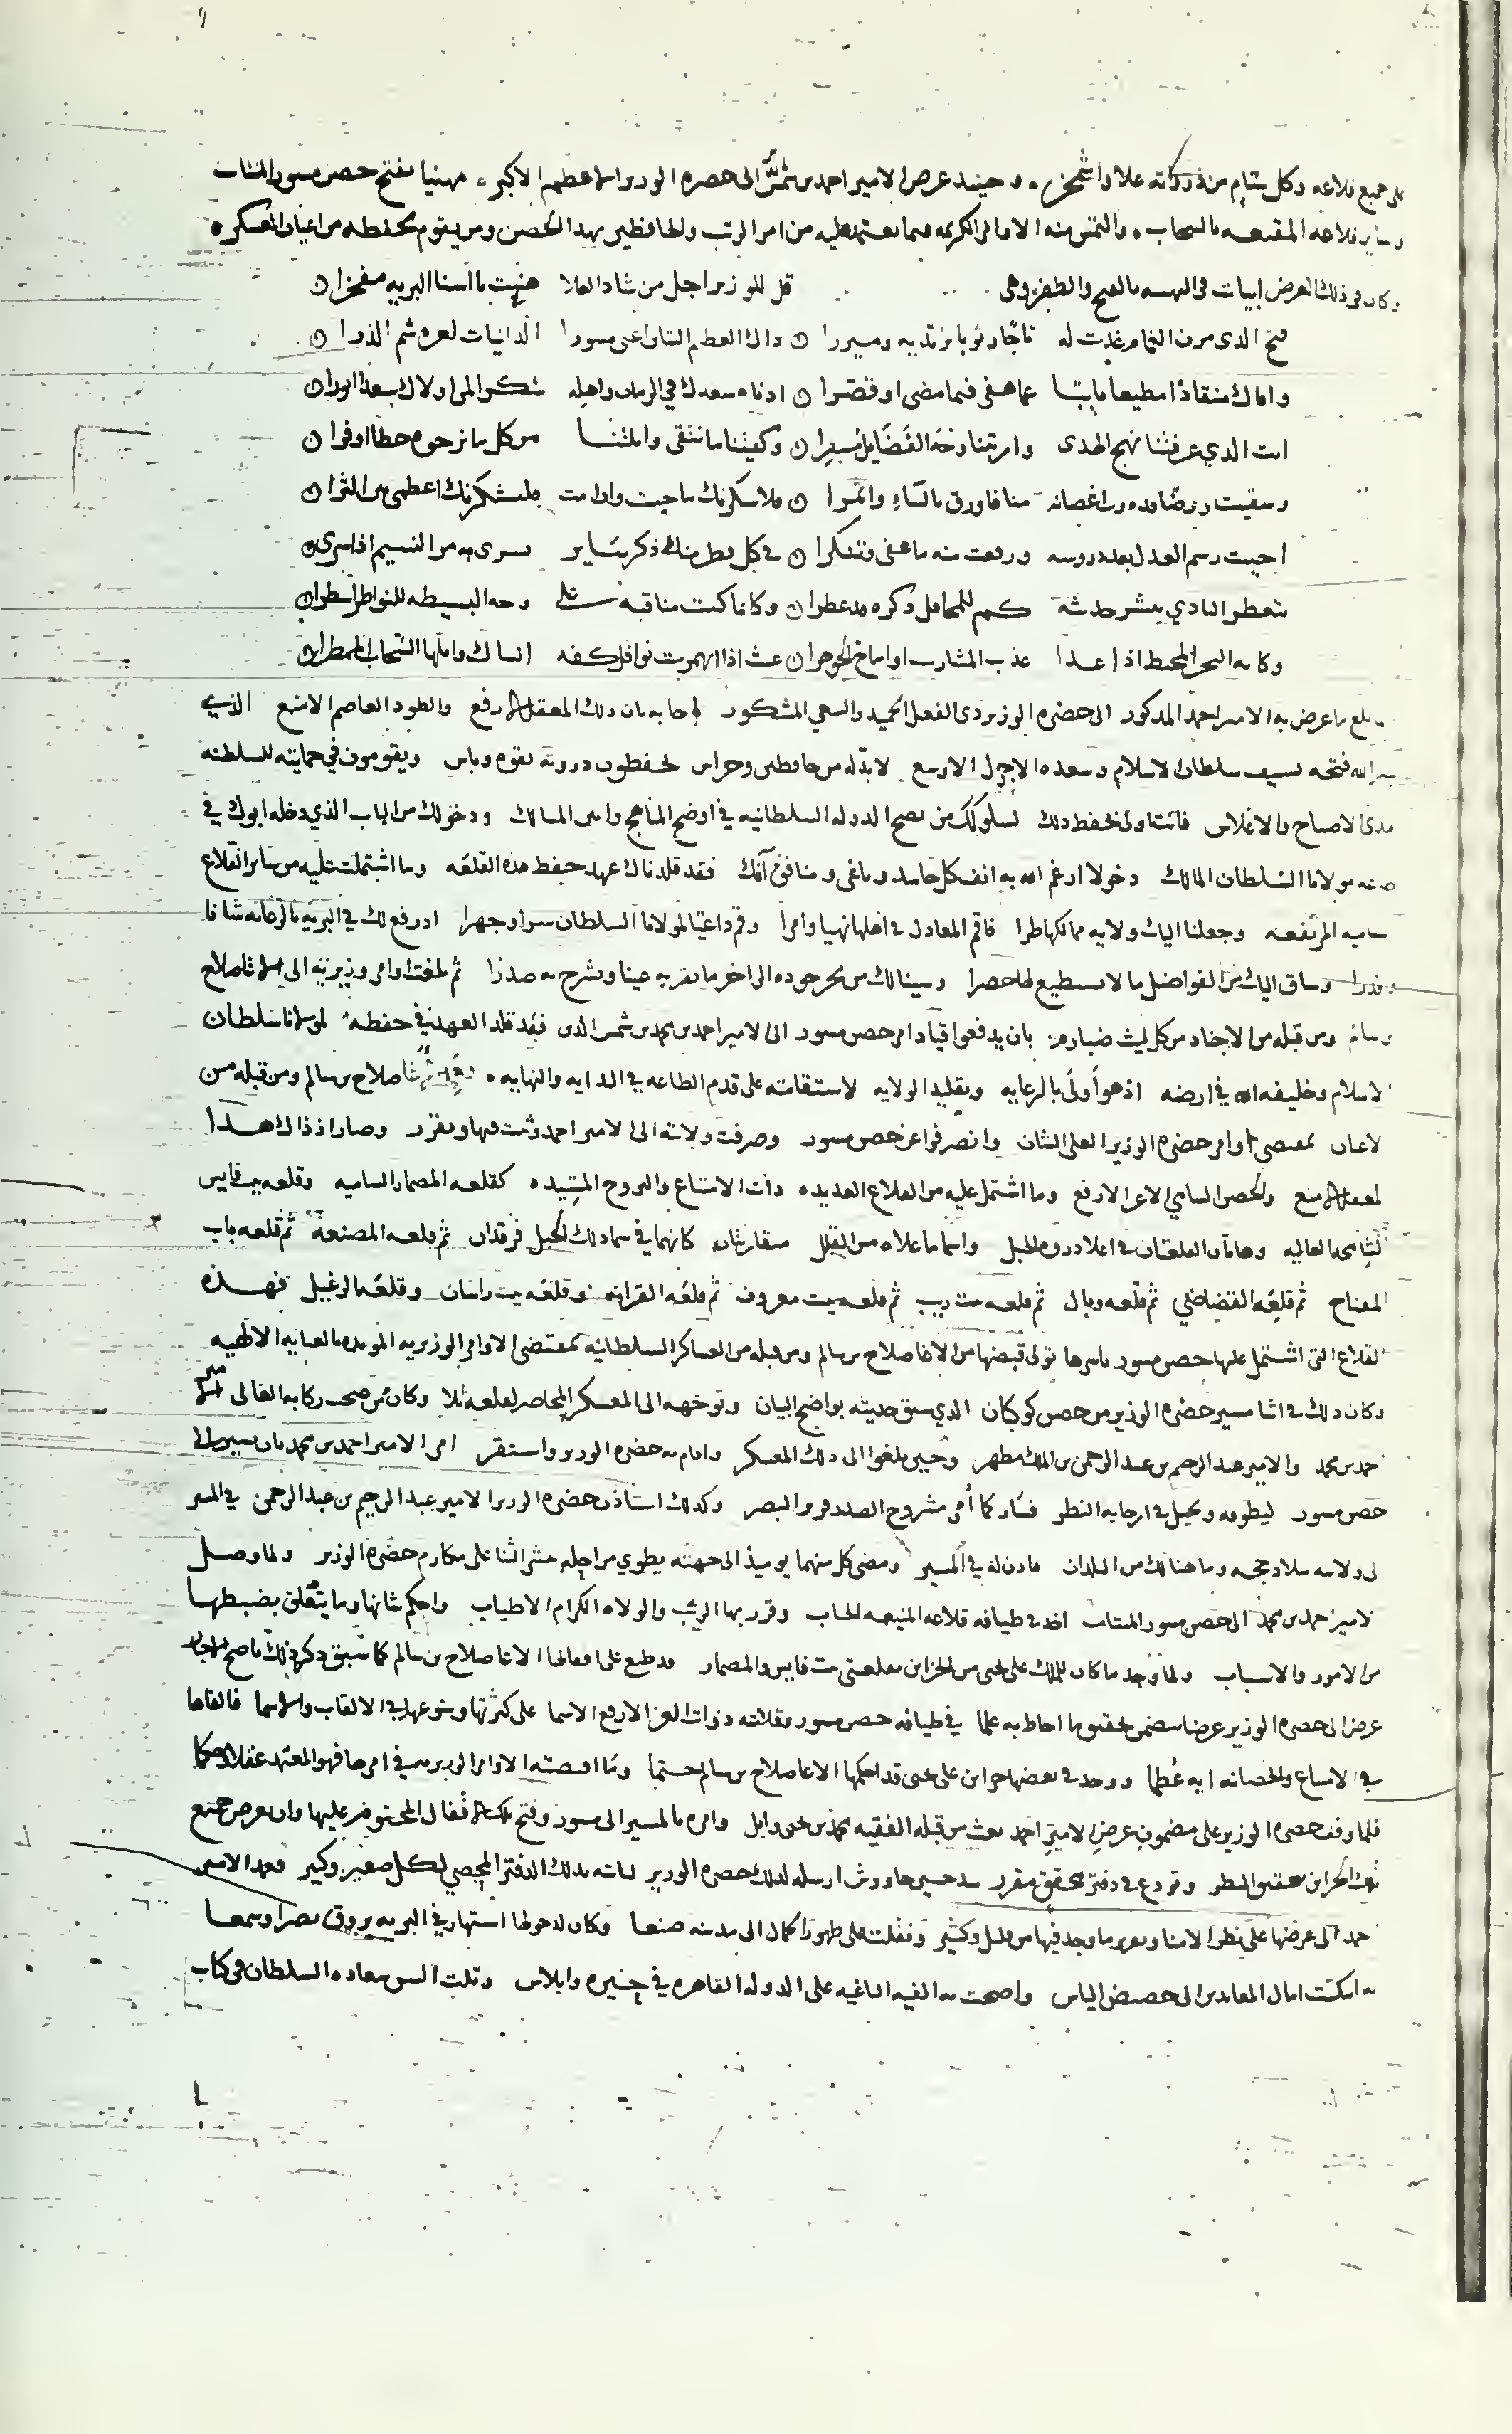 على جميع قلاعه وكل شام من ذركاته علا واشمخر وحينيذ عرض الامير احمد بن شمس الى حضره الوزير الاعظم الاكبر مهنيا بفتح حصن مسور المنتاب
وساير قلاعه المقنعه بالسحاب والتمس منه الاوامر الكريمه فيما يعتمد عليه من امر الرتب والحافظين بهدا الحصن ومن يقوم بحفظه من اعيان العسكر
وكان في ذلك العرض ابيات في التهنيه بالفتح والظفر وهي قل للوزير اجل من شاد العلا هنيت يا اسنا البريه مفخرا
فتح الذي من الغمام غدت له تاجا وثوبا يرتديه وميزرا ذاك العظيم الشان اعني مسورا الدانيات لعزه شم الذرا
واتاك منقادا مطيعا تايبا عما هفى فيما مضى او قصرا ادناه سعدك في الزمان واهله شكرا لمن اولاك سعدا
انت الذي عرفتنا نهج الهدى واريتنا وجه الفضايل مسفرا وكفيتنا ما نتقي وانلتنا من كل ما نرجوه حظا اوفرا
وسقيت روضا اغصانه منا فاورق بالثناء واثمرا فلاشكرنك ما حييت وان امت فلتشكرنك اعظمي في الثرا
احييت رسم العدل بعد دروسه ورفعت منه ما عفى وتنكرا في كل قطر منك ذكر ساير يسري به مر النسيم اذا سرى
يتعطر النادي بنشر حديثه كم للمحافل ذكره قد عطرا وكانما كتبت مناقبه على وجه البسيطه للنواظر اسطرا
وكانه البحر المحيط اذا غدا عذب المشارب الجوهرا غيث اذا انهمرت نوافل كفه انساك وابلها السحاب الممطرا
بلغ ما عرض به الامير احمد المذكور الى حضره الوزير ذي الفعل الحميد والسعي المشكور اجابه بان ذلك المعقل الارفع والطود العاصم الامنع الذي
يسر الله فتحه بسيف سلطان الاسلام وسعده الاجزل الاوسع لا بد له من حافظين وحراس يحفظون دروته بقوه وباس ويقومون في حمايته للسلطنه
مدى الاصباح والاغلاس فانت اولى بحفظ ذلك لسلوكك من نصح الدوله السلطانيه في اوضح المناهج واسر المسالك ودخولك من الباب الذي دخله ابوك في
مولانا السلطان المالك دخولا ارغم الله به انف كل حاسد وباغي ومنافق آفك فقد قلدناك عهد حفظ هذه القلعه وما اشتملت عليه من ساير القلاع
ساميه المرتفعه وجعلنا اليك ولايه ممالكها طرا فاقم المعادل في اهلها نهيا وامرا وقم داعيا لمولانا السلطان سرا وجهرا ادرفع لك في البريه بالرعايه شانا
وقدرا وساق اليك من الفواضل ما لا تستطيع لها حصرا وسينالك من بحر جوده الزاخر ما تقر به عينا وتشرح به صدرا ثم بلغت اوامر وزيريه الى الاغا صلاح
بن سالم ومن قبله من الاجناد من كل ليث ضبارم بان يدفعوا قياد امر حصن مسور الى الامير احمد بن محمد بن شمس الدين فقد قلد العهد في حفظه لمولانا سلطان
الاسلام وخليفه الله في ارضه اذ هو اولى بالرعايه وبتقليد الولايه لاستقامته على قدم الطاعه في البدايه والنهايه صلاح بن سالم ومن قبله من
الاعيان بمقتضى اوامر حضره الوزير العلي الشان وانصرفوا عن حصن مسور وصرفت ولايته الى الامير احمد وثبت فيها وتقرر وصار اذ ذاك هذا
المعقل الامنع والحصن السامي الاعز الارفع وما اشتمل عليه من القلاع العديده ذات الامتناع والبروج المشيده كقلعه المصمار الساميه وقلعه بيت فايس
الشامخه العاليه وهاتان القلعتان في اعلا ذروه الجبل واسما ما علاه من القلل متقاربتان كانهما في سما ذلك الجبل فرقدان ثم قلعه المصنعه ثم قلعه باب
المفتاح ثم قلعه القضاضي ثم قلعه وبال ثم قلعه بيت ريب ثم قلعه بيت معروف ثم قلعه القرانه وقلعه بيت راسان وقلعه الرغيل فهذه
القلاع التي اشتمل عليها حصن مسور باسرها تولى قبضها من الاغا صلاح بن سالم ومن قبله من العساكر السلطانيه بمقتضى الاوامر الوزيريه المويده بالعنايه الالهيه
وكان ذلك في اثنا مسير حضره الوزير من حصن كوكبان الذي سبق حديثه بواضح البيان وتوجهه الى المعسكر المحاصر لقلعه ثلا وكان ممن صحب ركابه العالي الامير
احمد بن محمد والامير عبد الرحيم بن عبد الرحمن بن الملك مطهر وحين بلغوا الى ذلك المعسكر واقام به حضره الوزير واستقر امر الامير احمد بن محمد بان يسير الى
حصن مسور ليطوفه ويجيل في ارجايه النظر فسار كما أمر مشروح الصدر قرير البصر وكذلك استاذن حضره الوزير الامير عبد الرحيم بن عبد الرحمن في المسير
الى ولايته بلاد حجه وما هنالك من البلدان فاذن له في المسير ومضى كل منهما يوميذ الى جهته يطوي مراحله بنشر الثنا على مكارم حضره الوزير ولما وصل
الامير احمد بن محمد الى حصن مسور المنتاب اخذ في طيافه قلاعه المنيعه الجناب وقرر بها الرتب والولاه الكرام الاطياب واحكم شانها وما يتعلق بضبطها
من الامور والاسباب ولما وجد ما كان للملك علي يحيى من الخزاين بقلعتي بيت فايس والمصمار قد طبع على اقفالها الاغا صلاح بن سالم كما سبق ذكر ذلك
عرض الى حضره الوزير عرضا يتضمن تحقيق ما احاط به علما في طيافه حصن مسور وقلاعه ذوات العز الارفع الاسما على كثرتها وتنوعها في الالقاب والاسما فالفاها
في الامتناع والحصانه ايه عظما ووجد في بعضها خزاين علي يحيى قد احكمها الاغا صلاح بن سالم ختما وما اقتضته الاوامر الوزيريه في امرها فهو المعتمد عقلا وحكما
فلما وقف حضره الوزير على مضمون عرض الامير احمد بعث من قبله الفقيه محمد بن يحيى وابل وامره بالمسير الى مسور وفتح تلك الاقفال المختوم عليها وان يعرض جميع
تلك الخزاين بتحقيق النظر وتودع في دفتر محقق مقرر بيد حسين جاووش ارسله لذلك حضره الوزير لياته بذلك الدفتر المحصي لكل صغير وكبير فعمد الامير
احمد الى عرضها على نظر الامنا وتحرير ما وجد فيها من قليل وكثير ونقلت على ظهور الجمال الى مدينه صنعا وكان لدخولها اشتهار في البريه يروق بصرا وسمعا
به انتكست امال المعاندين الى حضيض الياس واضحت به الفيه الباغيه على الدوله القاهره في حيره وابلاس وتليت السن سعاده السلطان في كتاب